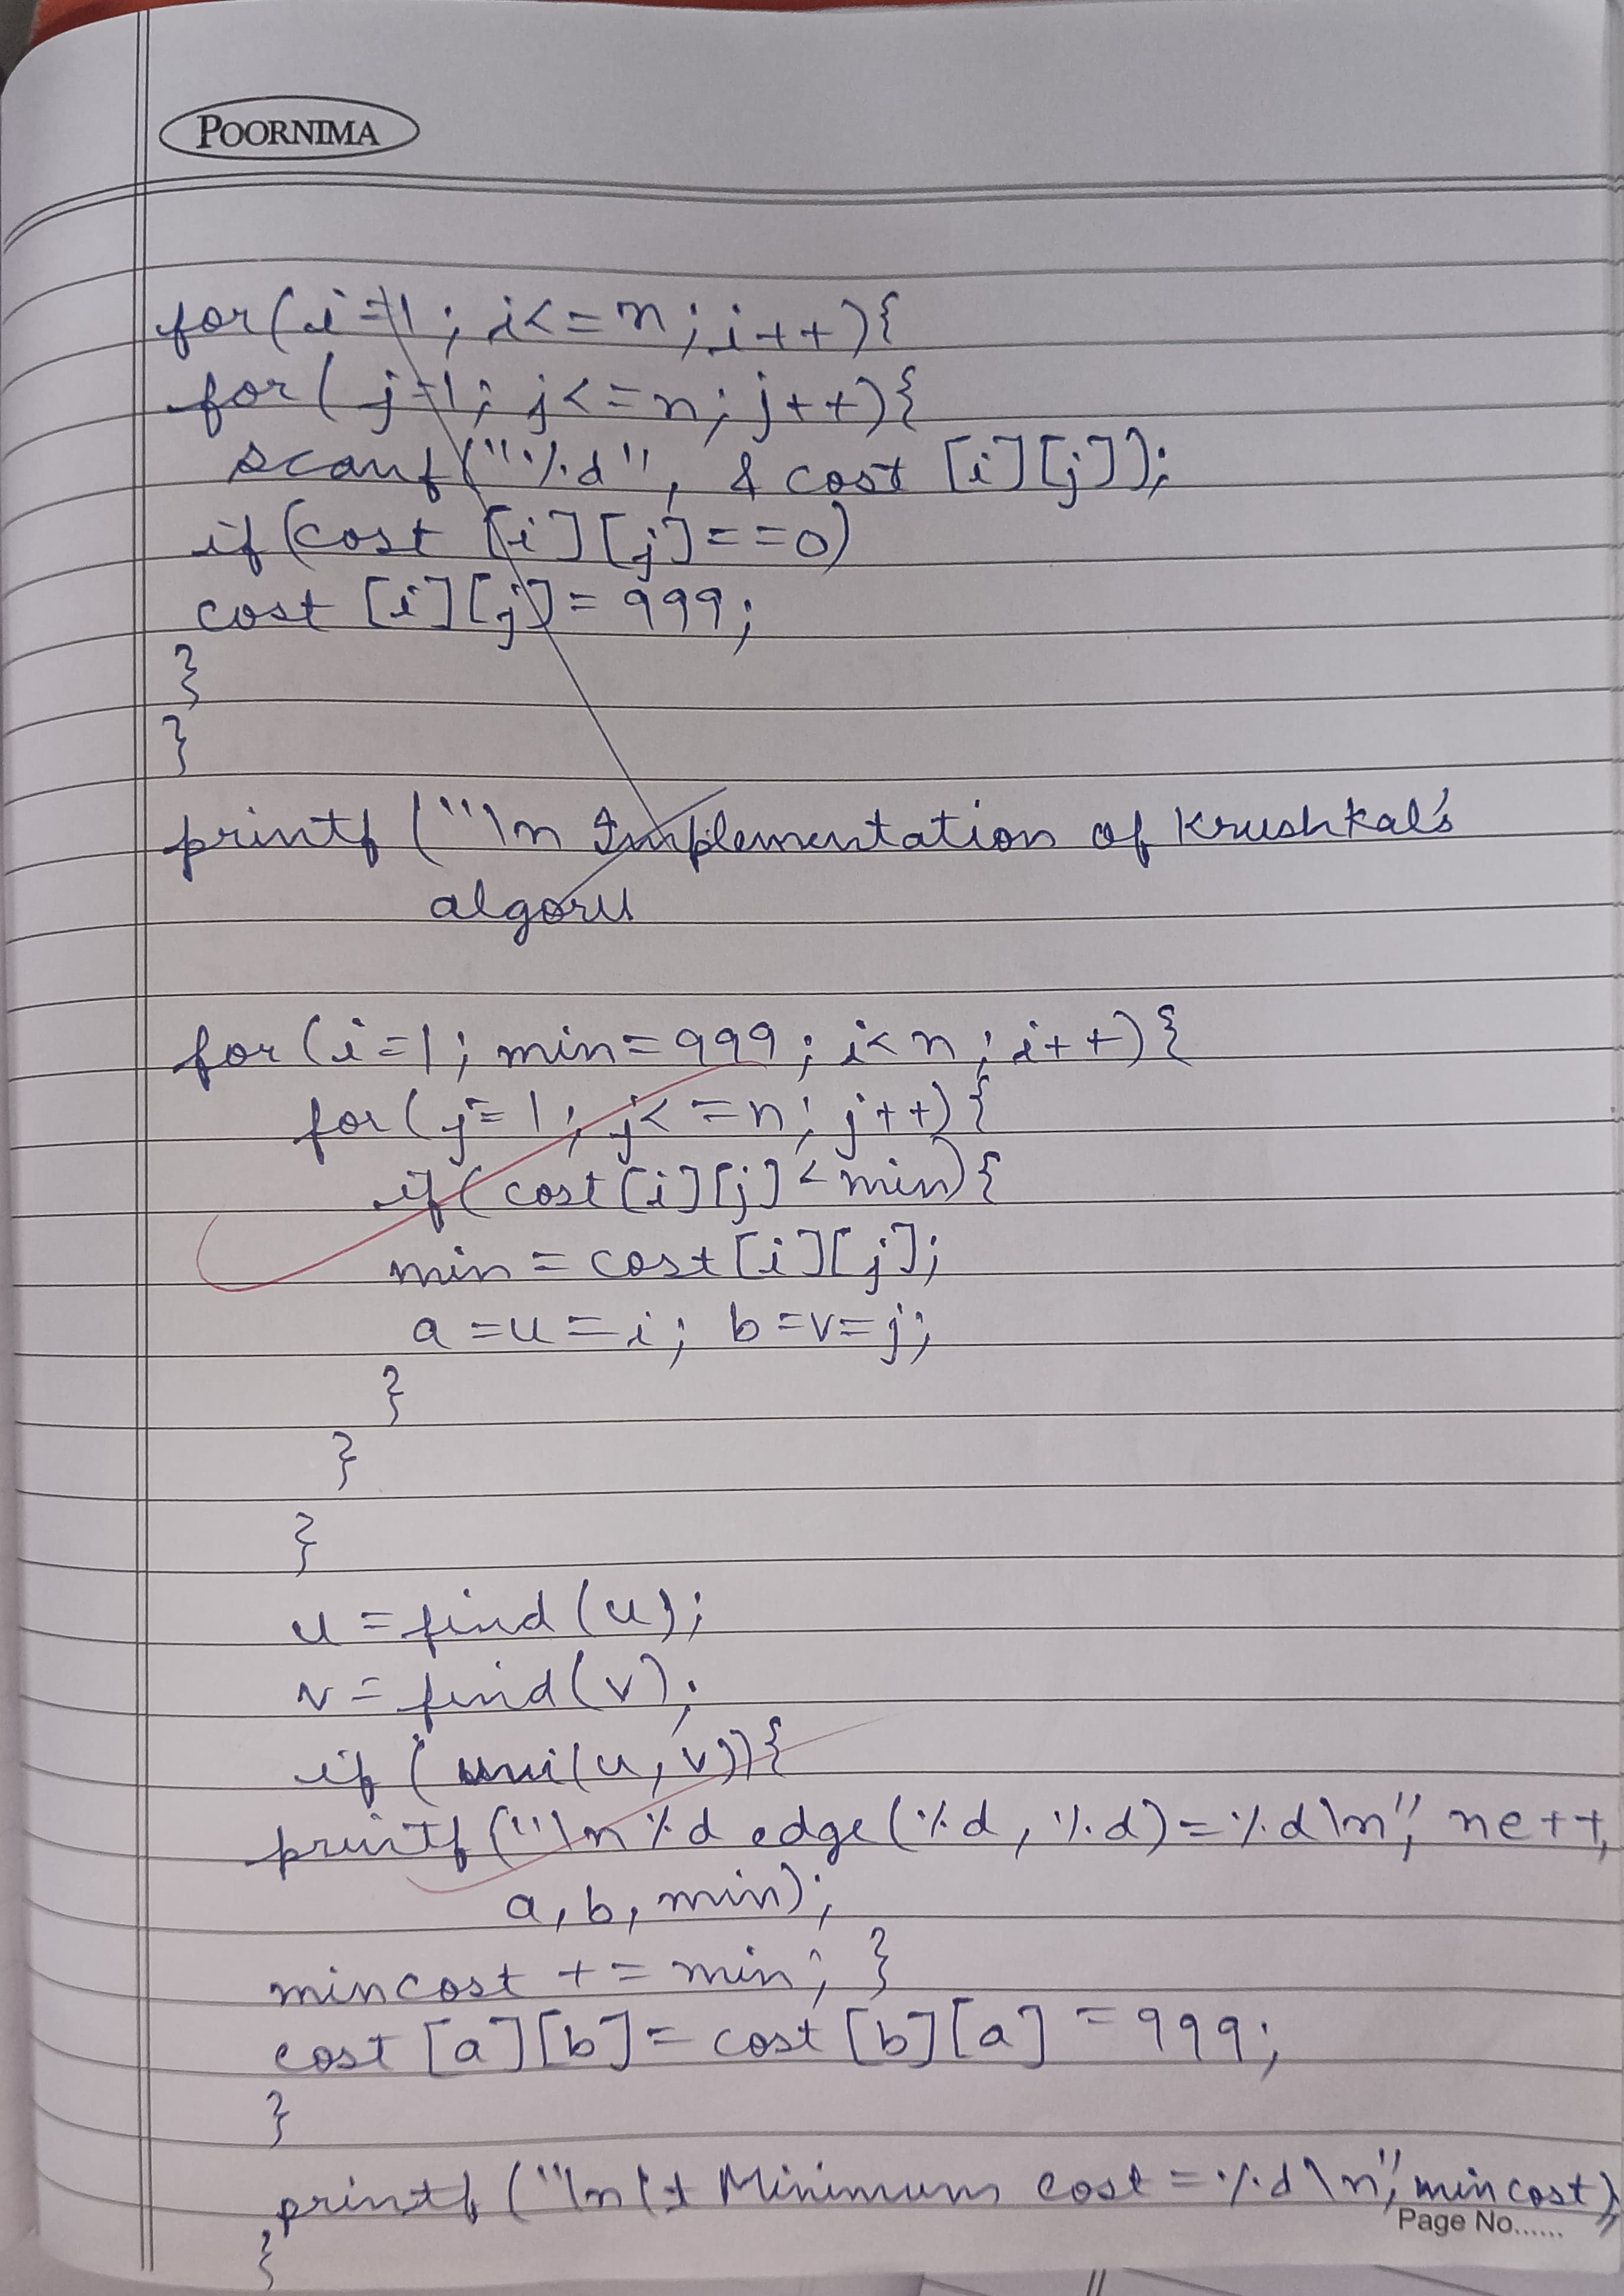 POORNIMA
for(i=1; i<=n; i++){
for(j=1; j<=n; j++){
scanf("%d", & cost [i][j]);
if(cost [i][j]==0)
cost [i][j]= 999;
}
}
printf ("\n Implementation of Krushkal's
algori
for(i=1; min=999; i<n; i++){
for(j=1; j<=n; j++){
if(cost[i][j]<min){
min = cost[i][j];
a=u=i; b=v=j;
}
}
}
u=find(u);
v=find(v);
if (uni(u,v)){
printf("\n%d edge(%d, %d)=%d\n", ne++,
a, b, min);
mincost += min; }
cost [a][b]= cost [b][a] = 999;
}
printf ("\n\t Minimum cost = %d\n", mincost);
Page No......
}